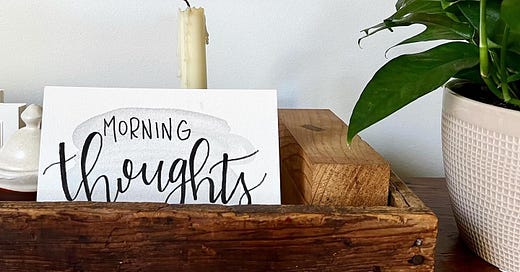 MORNING
thoughts